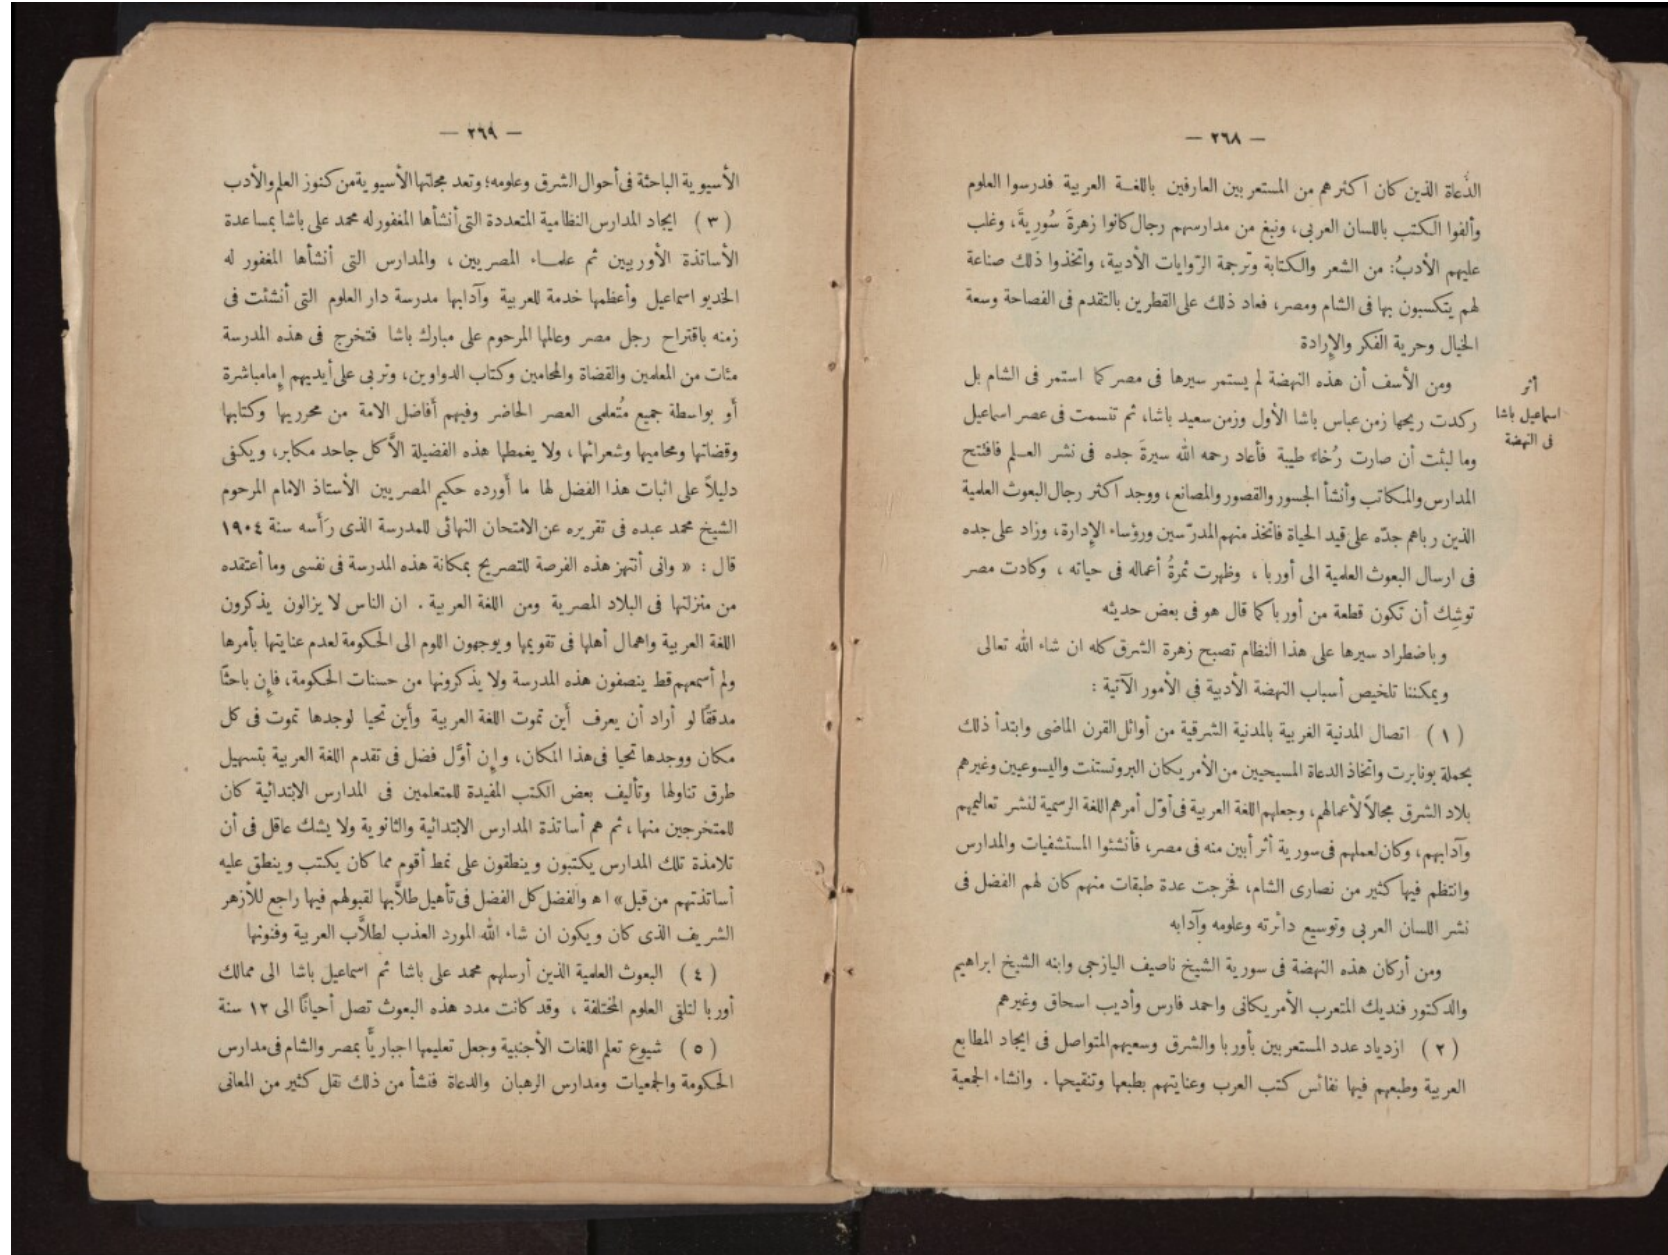 — ٢٦٨ —
الدُّعاة الذين كان أكثرهم من المستعربين العارفين باللغة العربية فدرسوا العلوم
وألفوا الكتب باللسان العربى، ونبغ من مدارسهم رجال كانوا زهرةَ سُورِيةَ، وغلب
عليهم الأدبُ: من الشعر والكتابة وترجمة الرّوايات الأدبية، واتخذوا ذلك صناعة
لهم يتكسبون بها فى الشام ومصر، فعاد ذلك على القطرين بالتقدم فى الفصاحة وسعة
الخيال وحرية الفكر والإرادة
أثر
اسماعيل باشا
فى النهضة
ومن الأسف أن هذه النهضة لم يستمر سيرها فى مصر كما استمر فى الشام بل
ركدت ريحها زمن عباس باشا الأول وزمن سعيد باشا، ثم تنسمت فى عصر اسماعيل
وما لبثت أن صارت رُخاءً طيبة فأعاد رحمه الله سيرةَ جده فى نشر العلم فافتتح
المدارس والمكاتب وأنشأ الجسور والقصور والمصانع، ووجد أكثر رجال البعوث العلمية
الذين رباهم جدّه على قيد الحياة فاتخذ منهم المدرّسين ورؤساء الإدارة، وزاد على جده
فى ارسال البعوث العلمية الى أوربا ، وظهرت ثمرةُ أعماله فى حياته ، وكادت مصر
توشِك أن تكون قطعة من أوربا كما قال هو فى بعض حديثه
وباضطراد سيرها على هذا النظام تصبح زهرة الشرق كله ان شاء الله تعالى
ويمكننا تلخيص أسباب النهضة الأدبية فى الأمور الآتية :
( ١ ) اتصال المدنية الغربية بالمدنية الشرقية من أوائل القرن الماضى وابتدأ ذلك
بحملة بونابرت واتخاذ الدعاة المسيحيين من الأمريكان البروتستنت واليسوعيين وغيرهم
بلاد الشرق مجالاً لأعمالهم، وجعلهم اللغة العربية فى أوّل أمرهم اللغة الرسمية لنشر تعاليمهم
وآدابهم، وكان لعملهم فى سورية أثر أبين منه فى مصر، فأنشئوا المستشفيات والمدارس
وانتظم فيها كثير من نصارى الشام، فخرجت عدة طبقات منهم كان لهم الفضل فى
نشر اللسان العربى وتوسيع دائرته وعلومه وآدابه
ومن أركان هذه النهضة فى سورية الشيخ ناصيف اليازجى وابنه الشيخ ابراهيم
والدكتور فنديك المتعرب الأمريكانى واحمد فارس وأديب اسحاق وغيرهم
( ٢ ) ازدياد عدد المستعربين بأوربا والشرق وسعيهم المتواصل فى ايجاد المطابع
العربية وطبعهم فيها نفائس كتب العرب وعنايتهم بطبعها وتنقيحها . وانشاء الجمعية
— ٢٦٩ —
الأسيوية الباحثة فى أحوال الشرق وعلومه؛ وتعد مجلتها الأسيوية من كنوز العلم والأدب
( ٣ ) ايجاد المدارس النظامية المتعددة التى أنشأها المغفور له محمد على باشا بمساعدة
الأساتذة الأوربيين ثم علماء المصريين ، والمدارس التى أنشأها المغفور له
الخديو اسماعيل وأعظمها خدمة للعربية وآدابها مدرسة دار العلوم التى أنشئت فى
زمنه باقتراح رجل مصر وعالمها المرحوم على مبارك باشا فتخرج فى هذه المدرسة
مئات من المعلمين والقضاة والمحامين وكتاب الدواوين، وتربى على أيديهم إمامباشرة
أو بواسطة جميع مُتعلمى العصر الحاضر وفيهم أفاضل الامة من محرريها وكتابها
وقضاتها ومحاميها وشعرائها ، ولا يغمطها هذه الفضيلة الاَّ كل جاحد مكابر، ويكفى
دليلاً على اثبات هذا الفضل لها ما أورده حكيم المصريين الأستاذ الامام المرحوم
الشيخ محمد عبده فى تقريره عن الامتحان النهائى للمدرسة الذى رَأسه سنة ١٩٠٤
قال : « وانى أنتهز هذه الفرصة للتصريح بمكانة هذه المدرسة فى نفسى وما أعتقده
من منزلتها فى البلاد المصرية ومن اللغة العربية . ان الناس لا يزالون يذكرون
اللغة العربية واهمال أهلها فى تقويمها ويوجهون اللوم الى الحكومة لعدم عنايتها بأمرها
ولم أسمعهم قط ينصفون هذه المدرسة ولا يذكرونها من حسنات الحكومة، فإن باحثًا
مدققًا لو أراد أن يعرف أين تموت اللغة العربية وأين تحيا لوجدها تموت فى كل
مكان ووجدها تحيا فى هذا المكان، وإن أوَّل فضل فى تقدم اللغة العربية بتسهيل
طرق تناولها وتأليف بعض الكتب المفيدة للمتعلمين فى المدارس الابتدائية كان
للمتخرجين منها ، ثم هم أساتذة المدارس الابتدائية والثانوية ولا يشك عاقل فى أن
تلامذة تلك المدارس يكتبون وينطقون على نمط أقوم مما كان يكتب وينطق عليه
أساتذتهم من قبل » اه والفضل كل الفضل فى تأهيل طلاَّبها لقبولهم فيها راجع للأزهر
الشريف الذى كان ويكون ان شاء الله المورد العذب لطلاَّب العربية وفنونها
( ٤ ) البعوث العلمية الذين أرسلهم محمد على باشا ثم اسماعيل باشا الى ممالك
أوربا لتلقى العلوم المختلفة ، وقد كانت مدد هذه البعوث تصل أحيانًا الى ١٢ سنة
( ٥ ) شيوع تعلم اللغات الأجنبية وجعل تعليمها اجباريًّا بمصر والشام فى مدارس
الحكومة والجمعيات ومدارس الرهبان والدعاة فنشأ من ذلك نقل كثير من المعانى